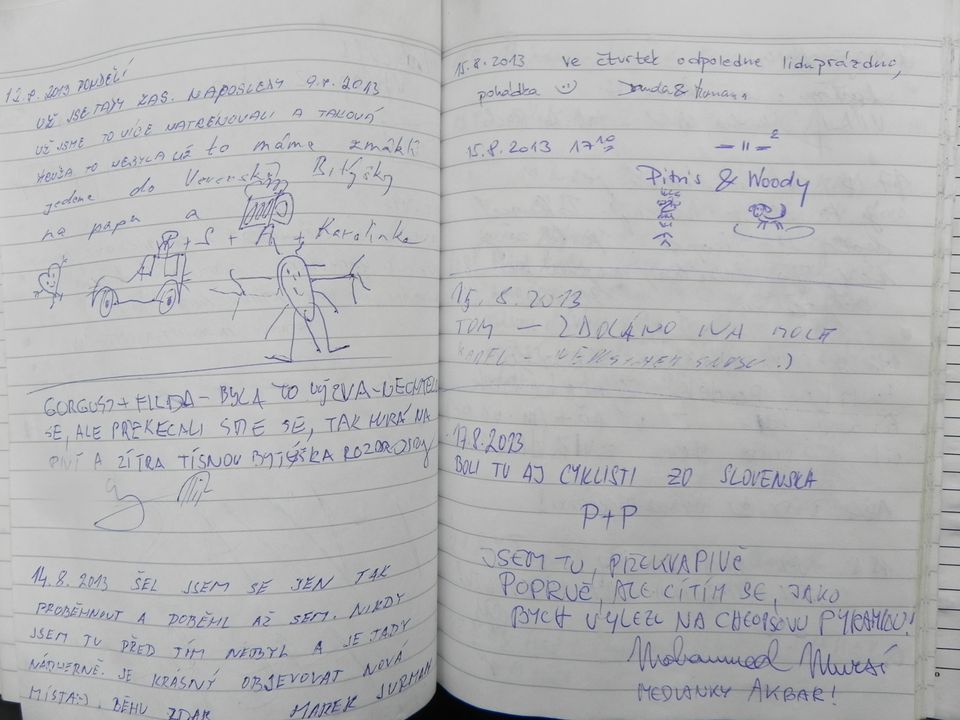 12.8.2013 PONDĚLÍ
UŽ JSE TADY ZAS. NAPOSLEDY 9.7. 2013
UŽ JSME TO VÍCE NATRÉNOVALI A TAKOVÁ
HRŮZA TO NEBYLA UŽ to máme zmáklí
jedeme do Veverské Bitýšky
na papu a
+ S + + Karolínka
GORGUSS + FILDA - BYLA TO VÝZVA - NECHTĚLO
SE, ALE PŘEKECALI SME SE, TAK HURÁ NA
PIVÍ A ZÍTRA TÍSNOV BYTÝŠKA
14.8. 2013 ŠEL JSEM SE JEN TAK
PROBĚHNOUT A DOBĚHL AŽ SEM. NIKDY
JSEM TU PŘED TÍM NEBYL A JE TADY
NÁDHERNĚ. JE KRÁSNÝ OBJEVOVAT NOVÁ
MÍSTA :-). BĚHU ZDAR MAREK JURMAN
15.8.2013 ve čtvrtek odpoledne liduprázdno,
pohádka
15.8.2013 17 10 = 11 = 2
Pitris & Woody
15.8.2013
TOM - ZDOLÁNO NA HOLE
17.8.2013
BOLI TU AJ CYKLISTI ZO SLOVENSKA
P+P
JSEM TU, PŘEKVAPIVĚ
POPRVÉ, ALE CÍTÍM SE, JAKO
BYCH VYLEZL NA CHEOPSOVU PYRAMIDU!
Mohammed Mursí
MEDLANKY AKBAR!